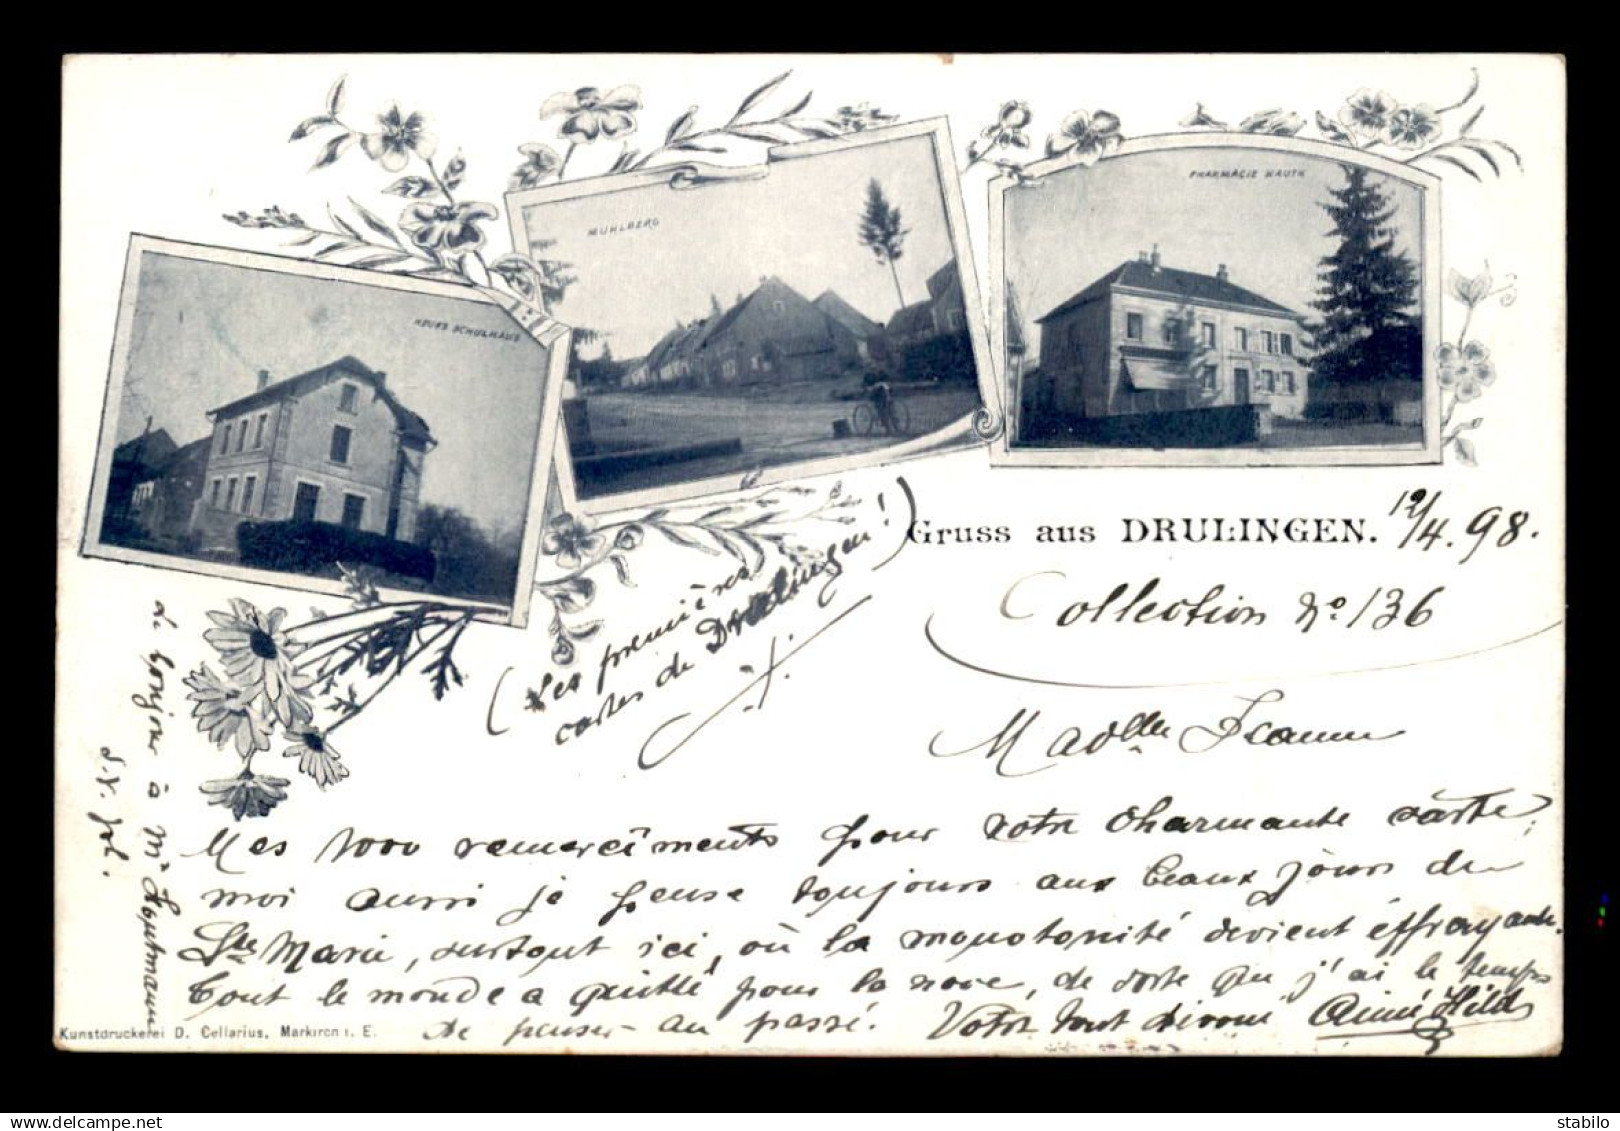 NEUES SCHULHAUS
MÜHLBERG
PHARMACIE HAUTH
Gruss aus DRULINGEN. 12/4. 98.
(Les premières
cartes de Drulingen!)
Collection No 136
Madlle Jeanne
Mes 1000 remerciments pour votre charmante carte;
moi aussi je pense toujours aux beaux jours de
Ste Marie, surtout ici, où la monotonité devient effrayante.
Tout le monde a quitté pour la noce, de sorte que j'ai le temps
de penser au passé. Votre tout dévoué Aimé Hild
le bonjour à Mr Hautmann
s. v. pl.
Kunstdruckerei D. Cellarius, Markirch i. E.